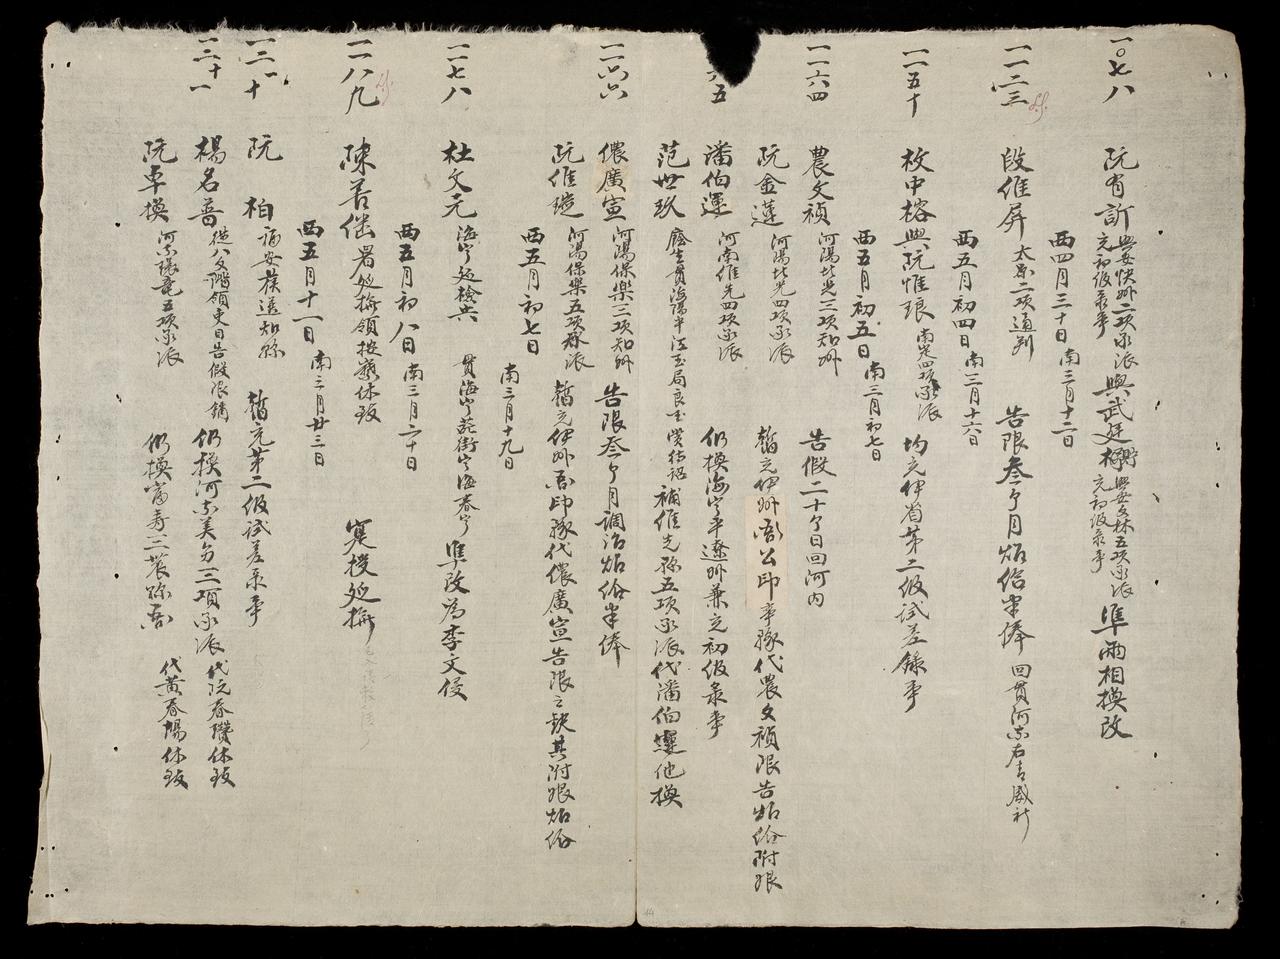 一〇七八
阮有訢 興安快州二項承派 充初級彔事 與武廷 興安文林五項承派 充初級彔事 準兩相換改
西四月三十日 南三月十二日
一一二三
段維屏 太原二項通判 告限叁个月炤給半俸 回貫河東右青威社
西五月初四日 南三月十六日
一一五十
枚中榕與阮惟琅 南定四項承派 均充伊省第二級試差錄事
西五月初五日 南三月初七日
一一六四
農文禎 河陽北光三項知州 告假二十个日回河內
阮金蓮 河陽北光四項承派 暫充伊州 公印事務代農文禎限告炤給附银
六五
潘伯運 河南維先四項承派 仍換海寧平遼州兼充初級彔事
范世玖 補維先縣五項承派代潘伯運他換
一一六六
儂廣宣 河陽保樂三項知州 告限叁个月調治炤給半俸
阮維璒 河陽保樂五項承派 暫充伊州 印務代儂廣宣告限之缺其附银炤給
西五月初七日 南三月十九日
一一七八
杜文元 海寧廵檢兵 貫海寧 街寧海春寧 準改為李文侵
西五月初八日 南三月二十日
一一八九
陳善 署廵撫領按察休致 寔授廵撫
西五月十一日 南三月廿三日
一二一十
阮柏 福安 知縣 暫充第二級試差彔事
一二十一
楊名普 從八文階領吏目告假限銷 仍換河東美良三項承派 代阮春瓚休致
阮卓換 河東 五項承派 仍換富壽三農縣 代黃春賜休致